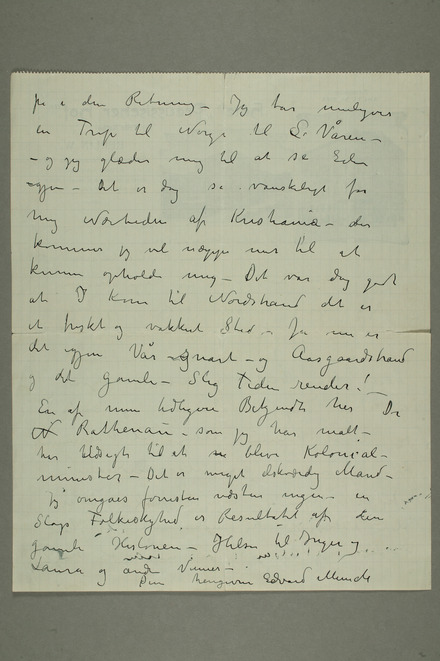 på i den Retning – Jeg tar muligens
en Trip til Norge til Våren –
– og jeg glæder mig til at se Eder
igjen – Det er dog så vanskeligt for
mig Nærheden af Kristiania – der
kommer jeg vel neppe mer til at
kunne opholde mig – Det var dog godt
at I kom til Nordstrand det er
et friskt og vakkert Sted – Ja nu er
det igjen Vår snart – og Aasgaardstrand
og det gamle – Slig Tiden render! –
En af mine tidligere Bekjendte her Dr
Rathenau – som jeg har malt –
har Udsigt til at blive Kolonial-
minister – Det er meget elskværdig Mand –
Jeg omgaes forresten næsten ingen – en
Slags Folkeskyhed er Resultatet af den
gamle Historien – Hilsen til Inger og
Laura og andre Venner –
Din hengivne Edvard Munch